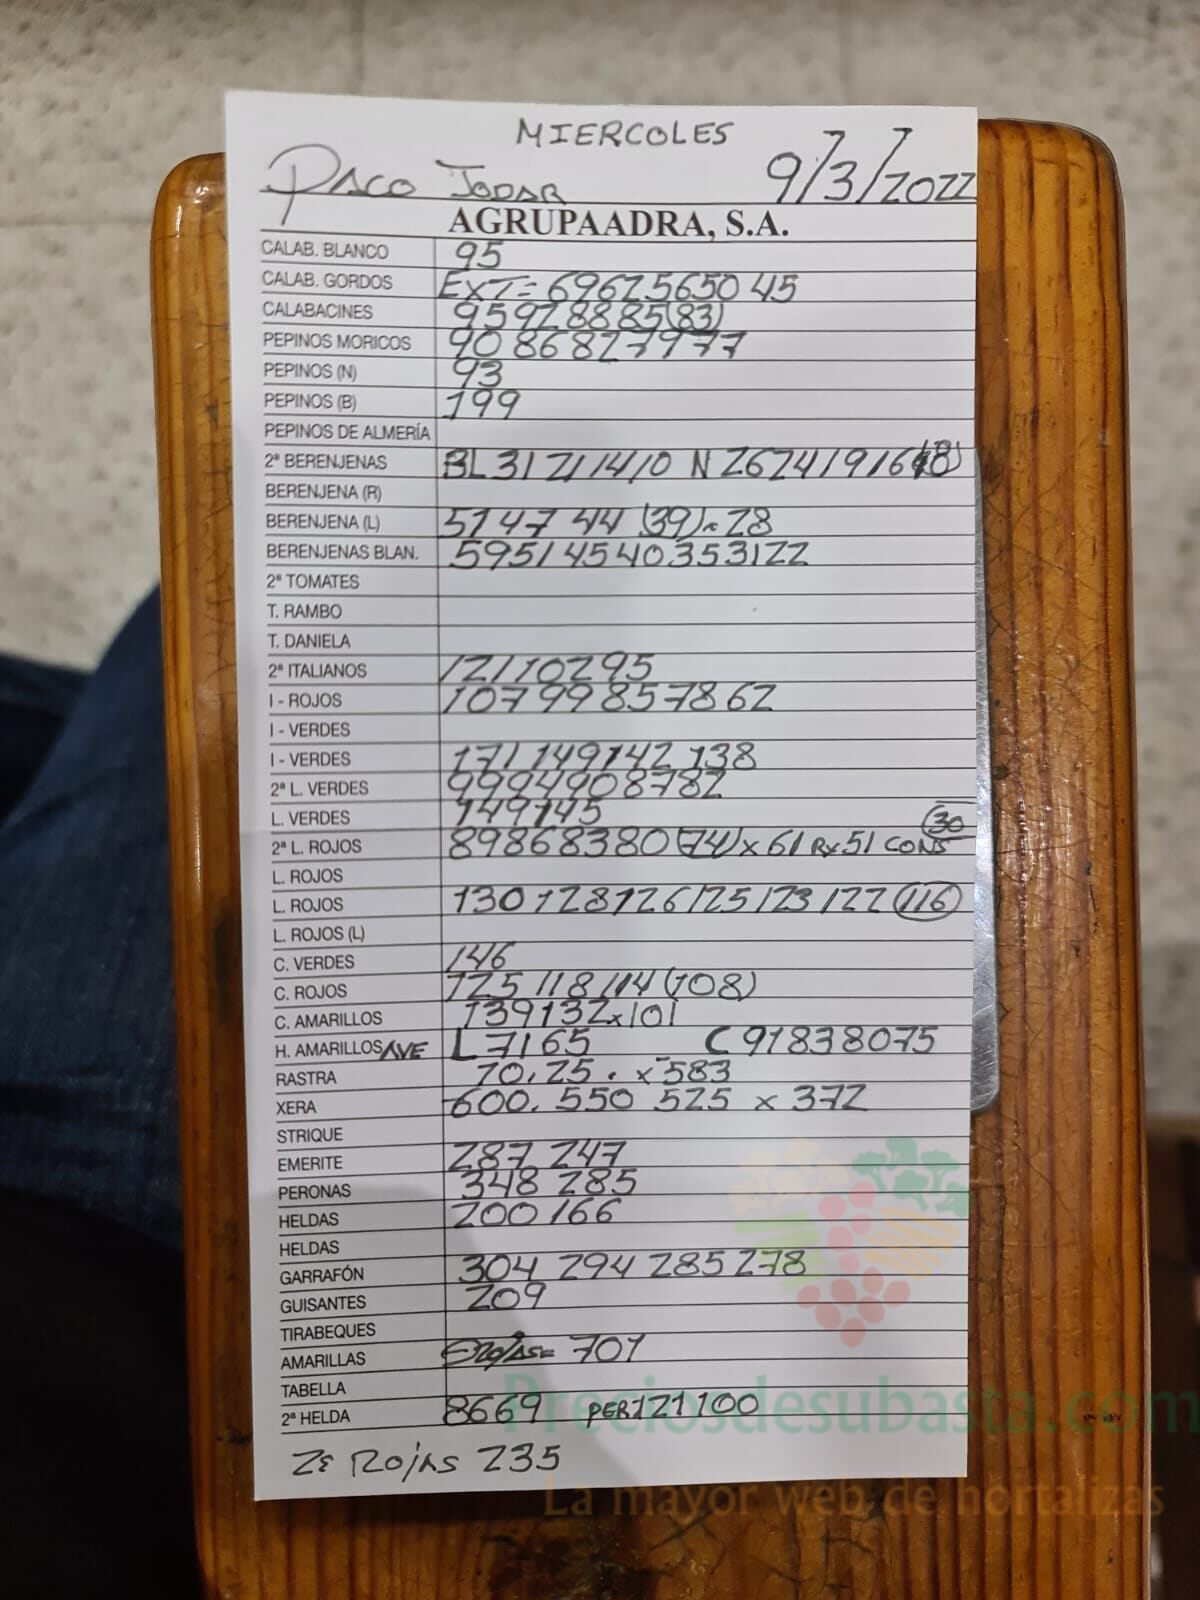 MIERCOLES
PACO JODAR 9/3/2022
AGRUPAADRA, S.A.
CALAB. BLANCO 95
CALAB. GORDOS EXT= 6962565045
CALABACINES 95928885(83)
PEPINOS MORICOS 9086827977
PEPINOS (N) 93
PEPINOS (B) 199
PEPINOS DE ALMERÍA
2ª BERENJENAS BL31211410 N 26241916
BERENJENA (R)
BERENJENA (L) 5147 44 (39)x 28
BERENJENAS BLAN. 59514540353122
2ª TOMATES
T. RAMBO
T. DANIELA
2ª ITALIANOS 12110295
I - ROJOS 10799857862
I - VERDES
I - VERDES 171149142 138
2ª L. VERDES 9994908782
L. VERDES 149145
30
2ª L. ROJOS 89868380(74)x 61 Rx51 CONS
L. ROJOS
L. ROJOS 130128126125123122(116)
L. ROJOS (L)
C. VERDES 146
C. ROJOS 125118114(108)
C. AMARILLOS 139132x101
H. AMARILLOS AVE L7165 C91838075
RASTRA 70,25. x583
XERA 600. 550 525 x 372
STRIQUE
EMERITE 287 247
PERONAS 348 285
HELDAS 200 166
HELDAS
GARRAFÓN 304 294 285 278
GUISANTES 209
TIRABEQUES
AMARILLAS 701
TABELLA
2ª HELDA 8669 PER121100
Preciosdesubasta.com
2ª ROJAS 235
La mayor web de hortalizas